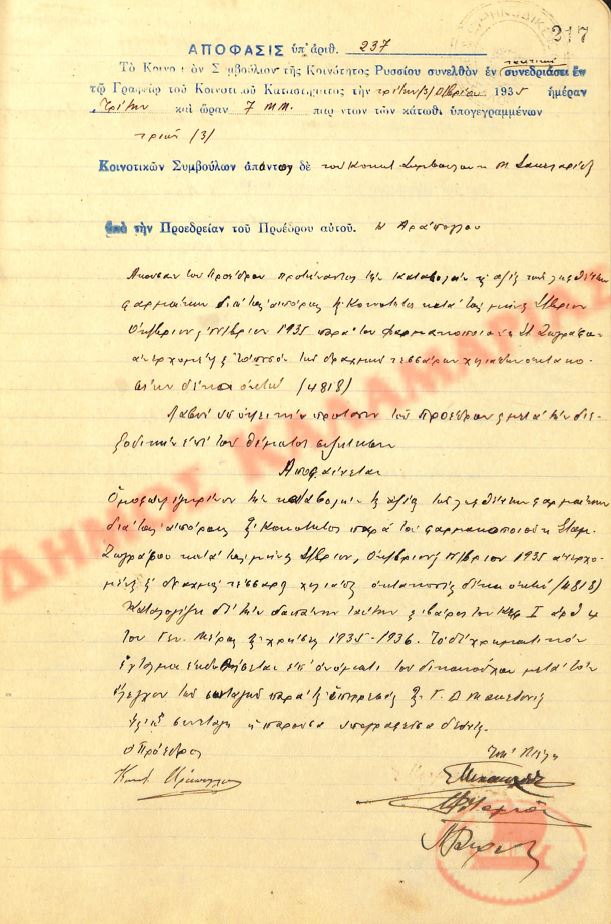 217
ΑΠΟΦΑΣΙΣ ὑπ' ἀριθ. 237
Τὸ Κοινοτικὸν Συμβούλιον τῆς Κοινότητος Ρυσσίου συνελθὸν ἐν τακτικῇ συνεδριάσει ἐν
τῷ Γραφείῳ τοῦ Κοινοτικοῦ Καταστήματος τὴν τρίτην /3/ 1935 ἡμέραν
Τρίτην καὶ ὥραν 7 μ.μ. παρόντων τῶν κάτωθι ὑπογεγραμμένων
τριῶν /3/
Κοινοτικῶν Συμβούλων ἀπόντος δὲ τοῦ Κοινοτ. Συμβούλου κ. Μ.
ὑπὸ τὴν Προεδρείαν τοῦ Προέδρου αὐτοῦ. Κ. Αράπογλου
Ακούσαν του Προέδρου προτείναντος την καταβολήν της αξίας των ληφθέντων
φαρμάκων δια τας απόρους της Κοινότητος κατά τους μήνας 7/βριον
Οκτώβριον 1935 παρά του φαρμακοποιού κ. Στ. Ζωγράφου
ανερχομένης εις το ποσόν των δραχμών τεσσάρων χιλιάδων οκτακο-
σίων δέκα οκτώ /4818/
Λαβόν υπ' όψει την πρότασιν του προέδρου και μετά την διε-
ξοδικήν επί του θέματος συζήτησιν
Αποφαίνεται
Ομοφώνως εγκρίνον την καταβολήν της αξίας των ληφθέντων φαρμάκων
δια τας απόρους της Κοινότητος παρά του φαρμακοποιού κ. Σταμ.
Ζωγράφου κατά τους μήνας 7/βριον, Οκτώβριον 1935 ανερχο-
μένης εις δραχμάς τέσσαρας χιλιάδας οκτακοσίας δέκα οκτώ /4818/
την δαπάνην ταύτην εις βάρος του Κεφ. I άρθ. 4
του Γεν. Μέρους της χρήσεως 1935-1936. Το δε χρηματικόν
ένταλμα εκδοθήσεται επ' ονόματι του δικαιούχου μετά τον
έλεγχον των συνταγών παρά της υπηρεσίας της Γ. Δ. Μακεδονίας
Εφ' ω συνετάγη η παρούσα υπογραφείσα δεόντως.
Ο Πρόεδρος
Τα Μέλη
Κωνστ. Αράπογλου
ΔΗΜΟΣ ΚΑΛΑΜΑΡΙΑΣ